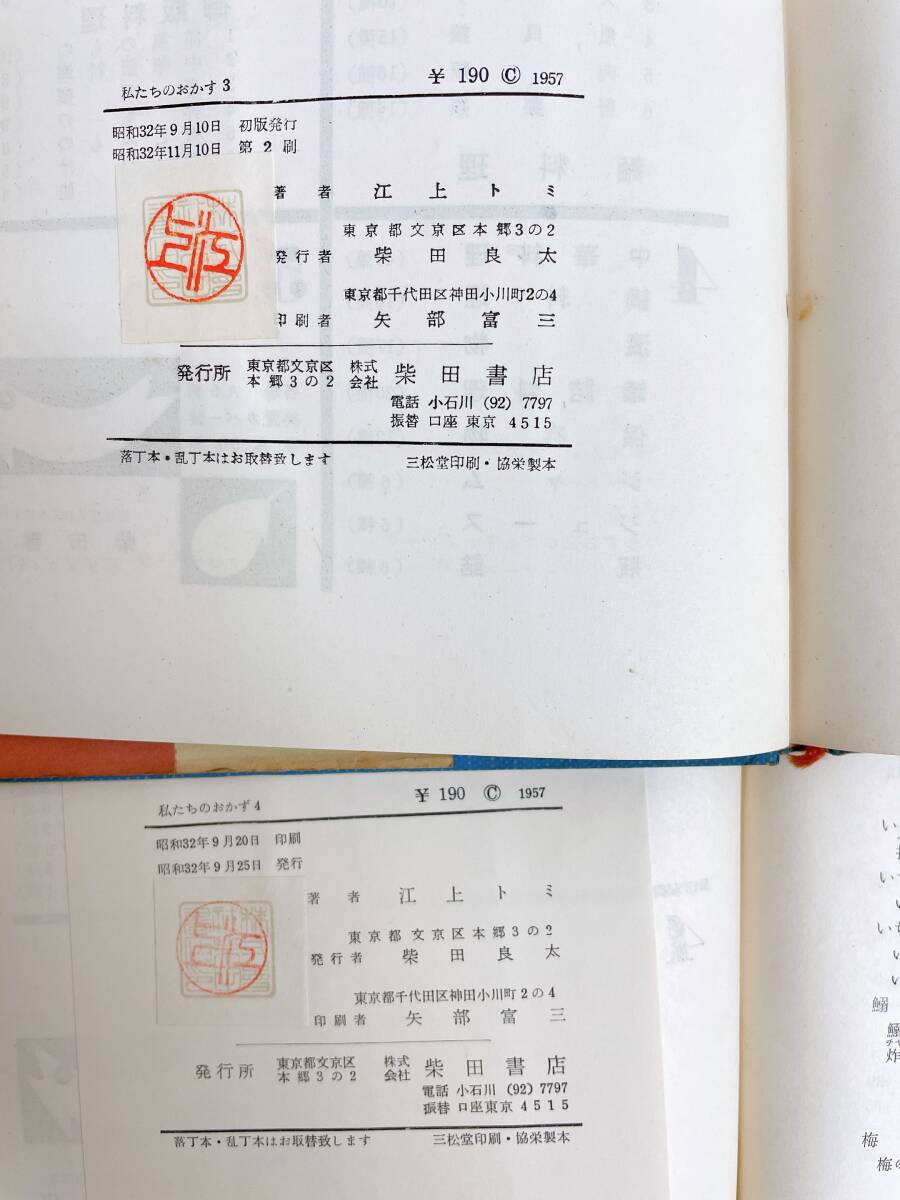 私たちのおかず 3
¥ 190 © 1957
昭和32年9月10日 初版発行
昭和32年11月10日 第2刷
著者 江上トミ
東京都文京区本郷3の2
発行者 柴田良太
東京都千代田区神田小川町2の4
印刷者 矢部富三
発行所 東京都文京区本郷3の2 株式会社 柴田書店
電話 小石川 (92) 7797
振替 口座 東京 4515
落丁本・乱丁本はお取替致します 三松堂印刷・協栄製本
私たちのおかず 4
¥ 190 © 1957
昭和32年9月20日 印刷
昭和32年9月25日 発行
著者 江上トミ
東京都文京区本郷3の2
発行者 柴田良太
東京都千代田区神田小川町2の4
印刷者 矢部富三
発行所 東京都文京区本郷3の2 株式会社 柴田書店
電話 小石川 (92) 7797
振替 口座東京 4515
落丁本・乱丁本はお取替致します 三松堂印刷・協栄製本
い
い
い
鰯
鰯
炸
梅
梅の